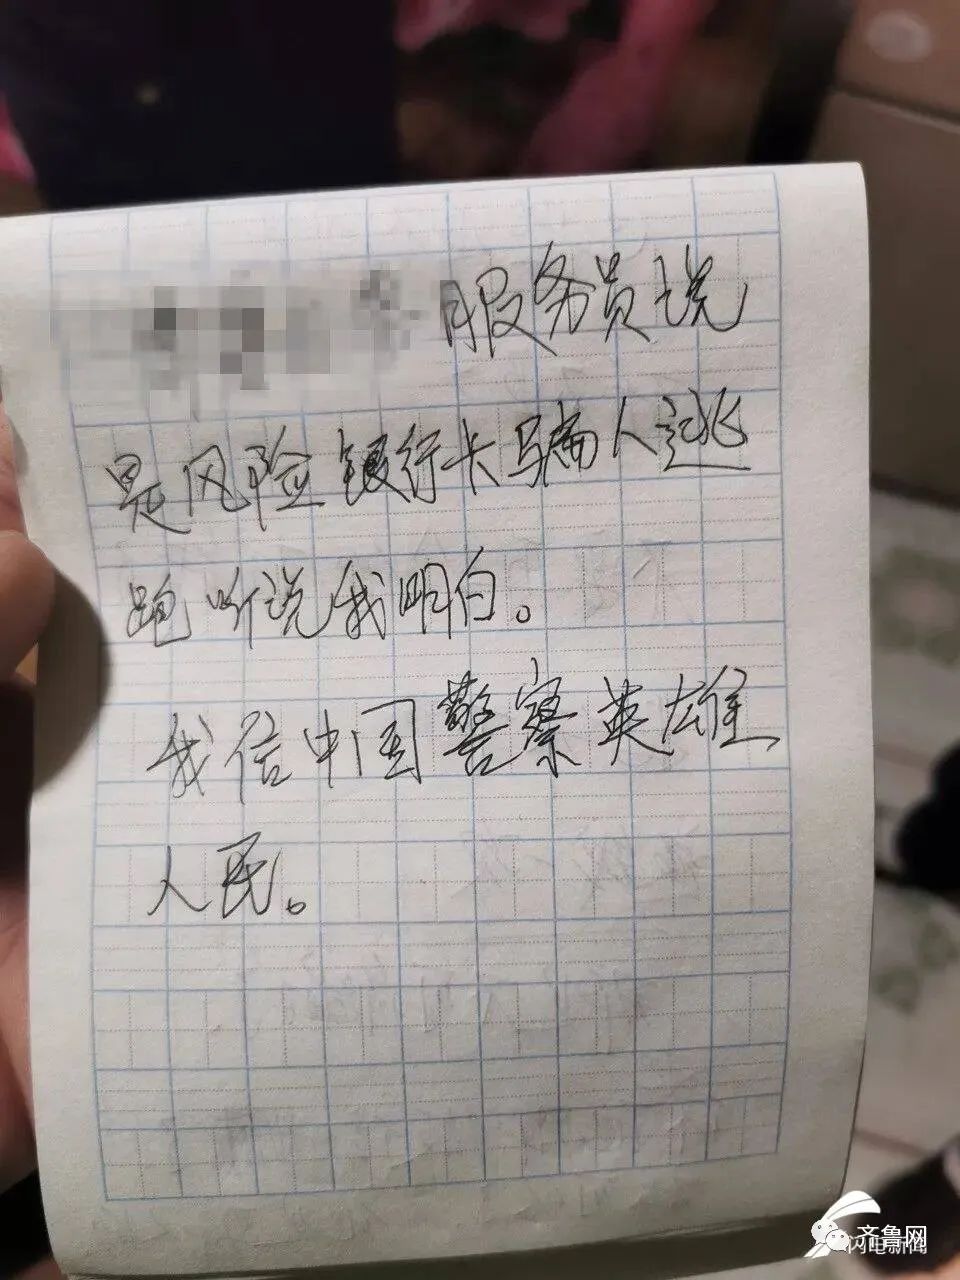 服务员说
是风险银行卡骗人逃
跑听说我明白。
我信中国警察英雄
人民。
齐鲁网
闪电新闻